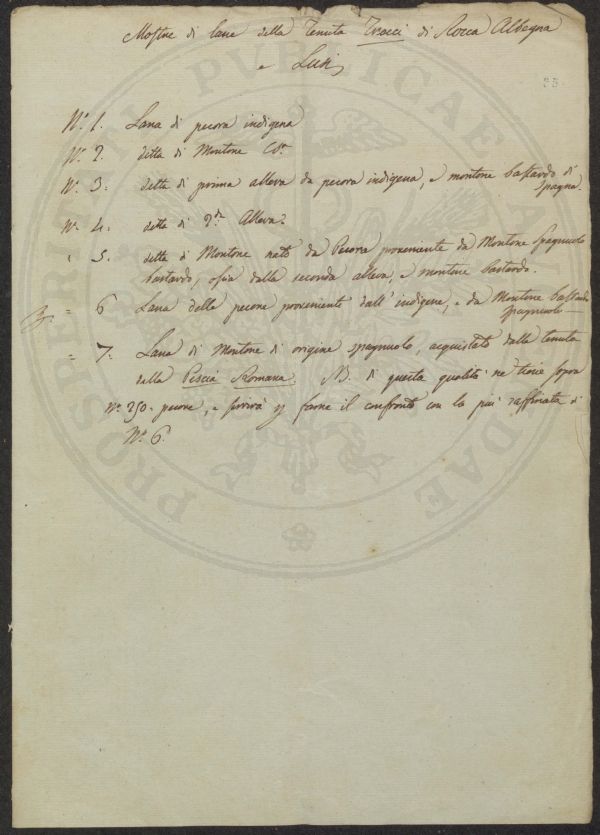 Mostre di lane della Tenuta Tracci di Rocca Albegna
e Lusi
N.º 1. Lana di pecora indigena
N.º 2. detta di Montone
N.º 3. detta di prima alleva da pecora indigena, e montone bastardo di
Spagna.
N.º 4. detta di 2.da Alleva.
" 5. detta di Montone nato da Pecora proveniente da Montone Spagnuolo
bastardo, osia dalla seconda alleva, e montone bastardo.
" 6 Lana delle pecore proveniente dall'indigene, e da Montone bastardo
spagnuolo
" 7. Lana di Montone di origine spagnuolo, acquistato dalla tenuta
della Pescia Romana. NB. di questa qualità ne tiene sopra
N.º 250. pecore, e servirà farne il confronto con la più raffinata di
N.º 6.
PROSPERITATI PUBLICAE AUGENDAE